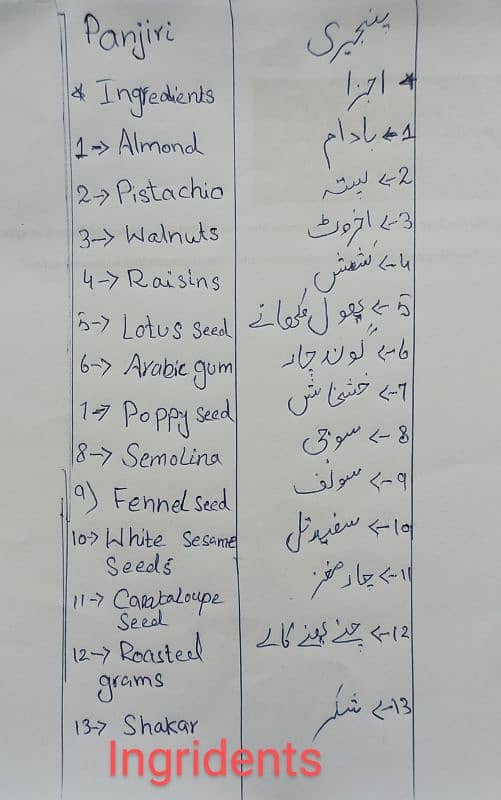 Panjiri پنجیری
* Ingredients * اجزا
1→ Almond 1← بادام
2→ Pistachio 2← پستہ
3→ Walnuts 3← اخروٹ
4→ Raisins 4← کشمش
5→ Lotus seed 5← پھول مکھانے
6→ Arabic gum 6← گوند چار
1→ Poppy seed 7← خشخاش
8→ Semolina 8← سوجی
9) Fennel seed 9← سونف
10→ White Sesame 10← سفید تل
Seeds
11→ Cantaloupe 11← چار مغز
Seed
12→ Roasted 12← چنے بھنے کالے
grams
13→ Shakar 13← شکر
Ingridents